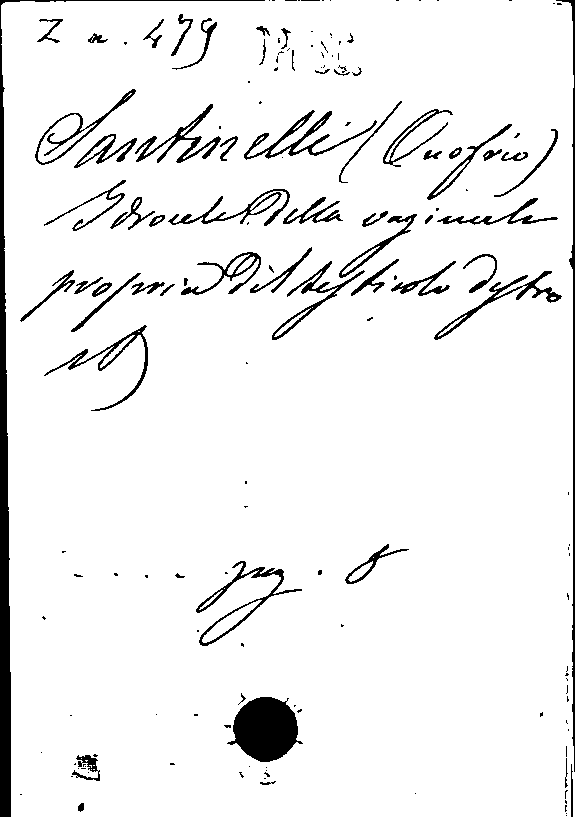 Z n. 479
Santinelli (Onofrio)
Idrocele della vaginale
propria del testicolo destro
pag. 8